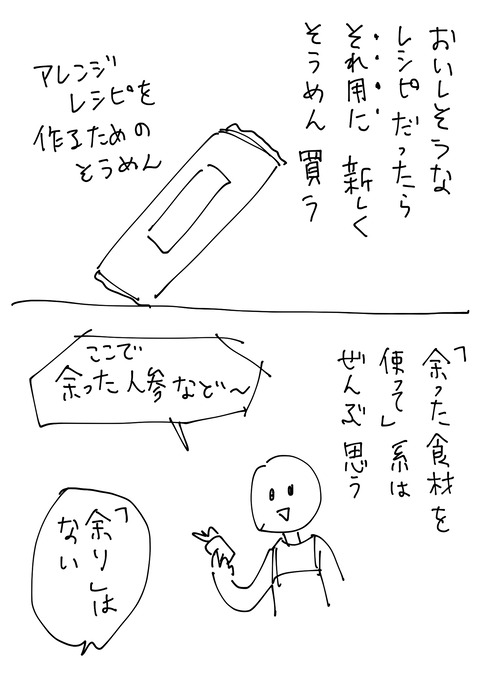 おいしそうな
レシピだったら
それ用に 新しく
そうめん 買う
アレンジ
レシピを
作るための
そうめん
「余った食材を
使って」系は
ぜんぶ 思う
ここで
余った人参など〜
「余り」は
ない